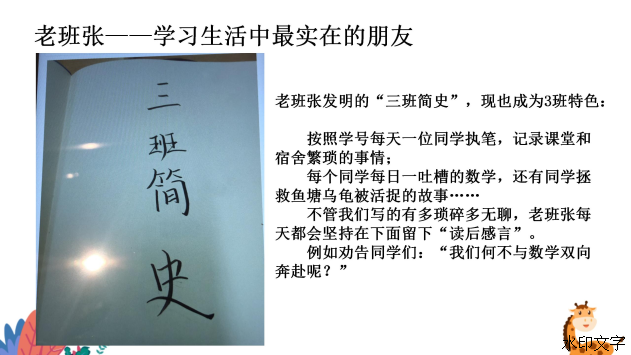 老班张——学习生活中最实在的朋友
三
班
简
史
老班张发明的“三班简史”，现也成为3班特色：
按照学号每天一位同学执笔，记录课堂和
宿舍繁琐的事情；
每个同学每日一吐槽的数学，还有同学拯
救鱼塘乌龟被活捉的故事……
不管我们写的有多琐碎多无聊，老班张每
天都会坚持在下面留下“读后感言”。
例如劝告同学们：“我们何不与数学双向
奔赴呢？”
水印文字